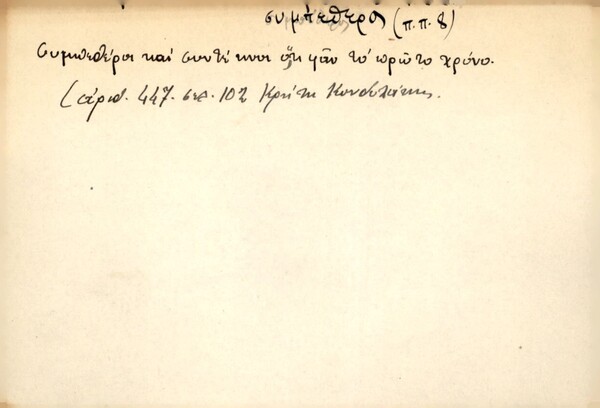 συμπέθερος (π.π. 8)
Συμπεθέροι καί συντέκνοι ὅ,τι φᾶν τό πρῶτο χρόνο.
(ἀριθ. 447. σελ. 102 Κρήτη Κονδυλάκης.